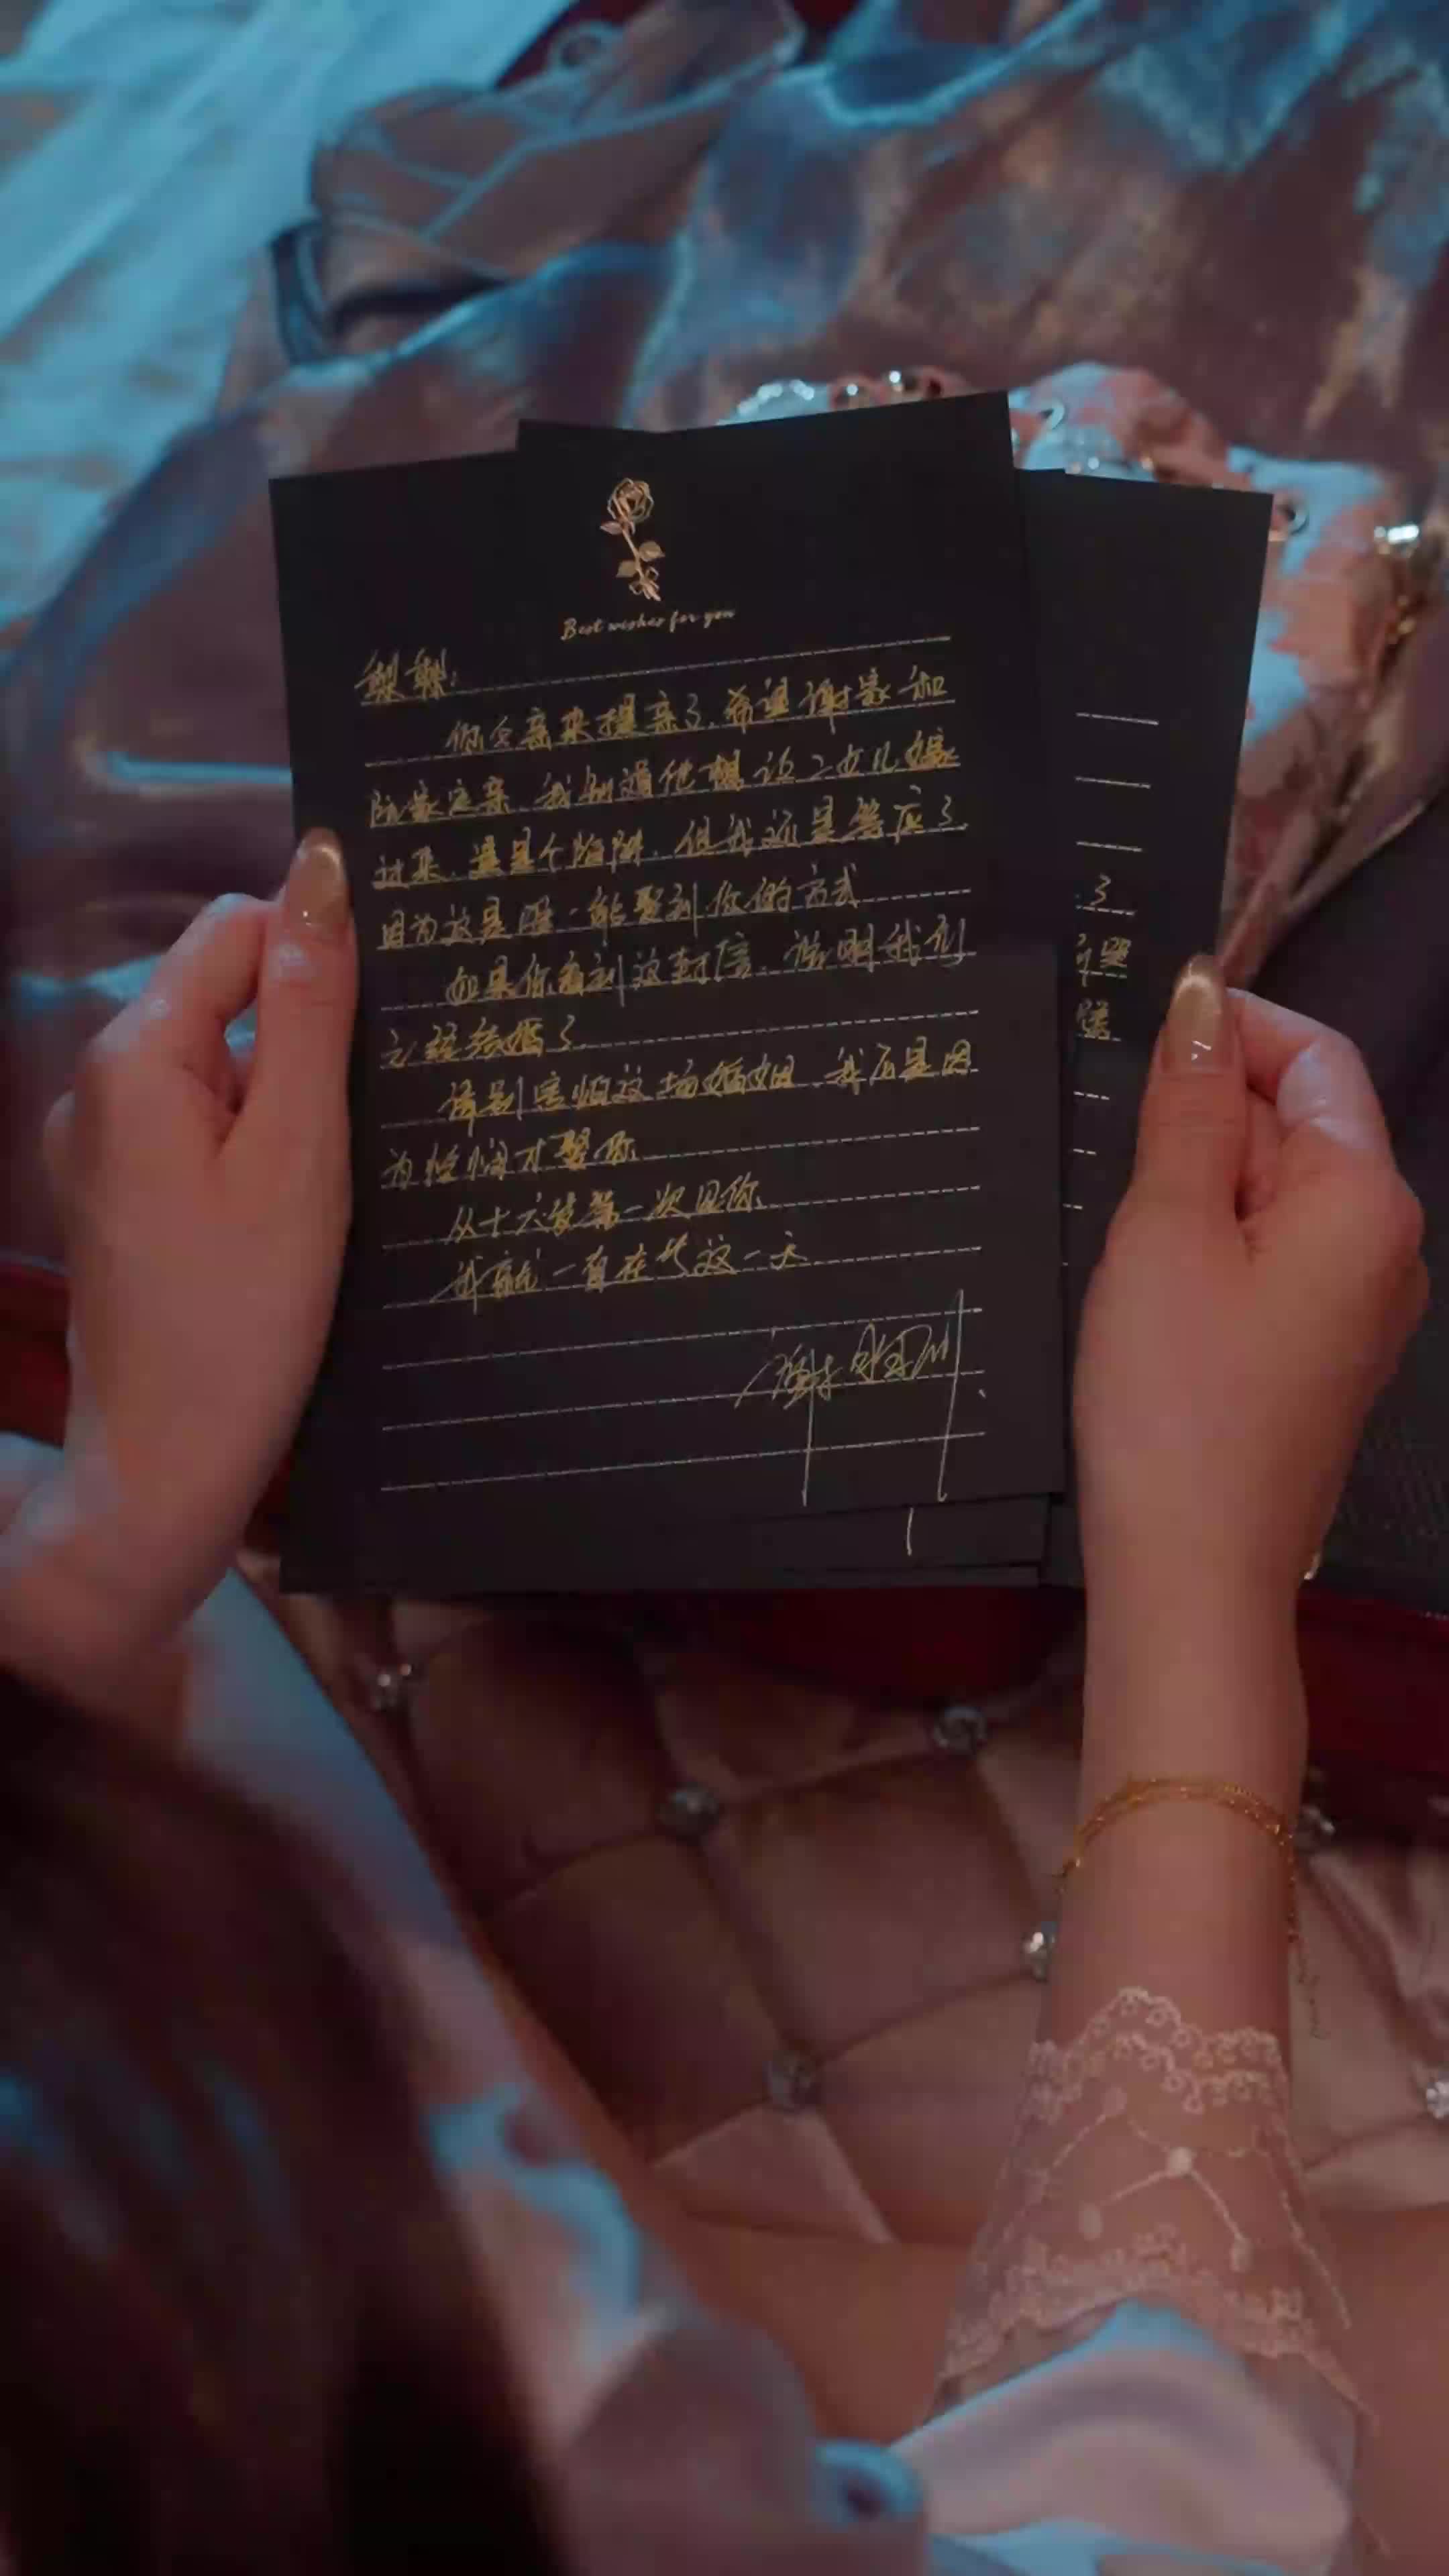 Best wishes for you
你父亲来提亲了,希望谢家和
阮家定亲,我知道他想让二女儿嫁
过来,这是个陷阱,但我还是答应了
因为这是唯一能娶到你的方式
如果你看到这封信,说明我们
已经结婚了
请别害怕这场婚姻,我不是因
为怜悯才娶你
从十六岁第一次见你
我就一直在等这一天
了